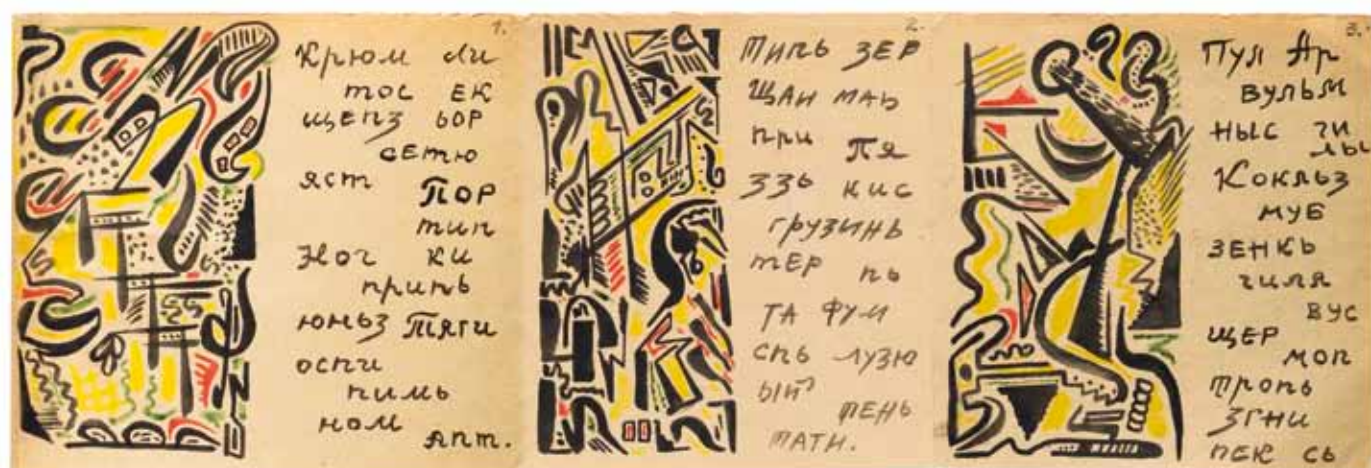 1.
Крюм Ли
тос ек
щепз ьор
сетю
яст Пор
тип
Ног ки
припь
юмьз Тяги
оспи
пимь
ном
Апт.
2.
Типь зер
щаи маь
при пя
ззь кис
грузинь
тер пь
та фуи
спь лузю
ыт
пень
пати.
3.
Пул Ар
вульм
ныс ги
лы
Кокльз
муб
зенкь
гиля
вус
щер
моп
тропь
згни
пек сь